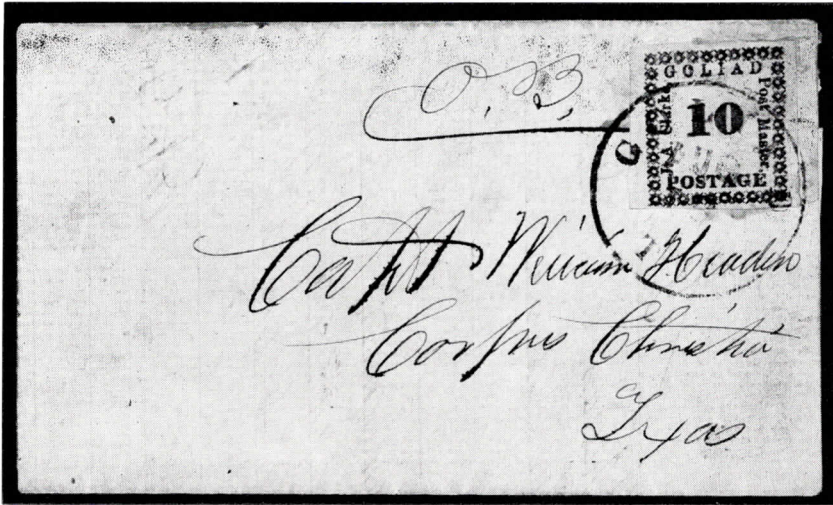 O. B.
GOLIAD
J. A. Clarke
10
Post Master
POSTAGE
G
Capt William Headen
Corpus Christi
Texas